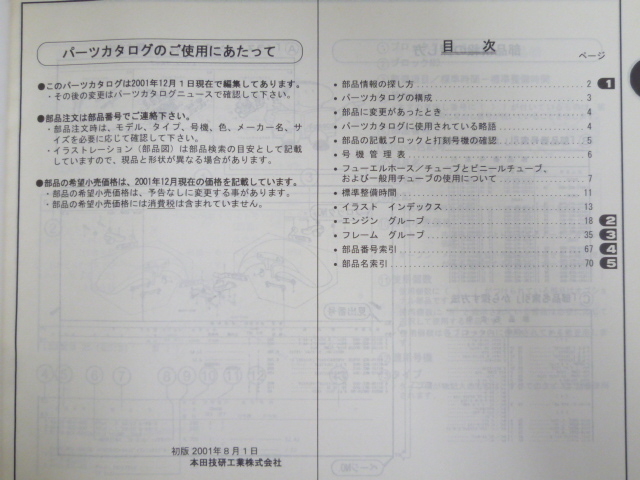 パーツカタログのご使用にあたって
●このパーツカタログは2001年12月1日現在で編集してあります。
・その後の変更はパーツカタログニュースで確認して下さい。
●部品注文は部品番号でご連絡下さい。
・部品注文時は、モデル、タイプ、号機、色、メーカー名、サ
イズを必要に応じて確認して下さい。
・イラストレーション（部品図）は部品検索の目安として記載
していますので、現品と形状が異なる場合があります。
●部品の希望小売価格は、2001年12月現在の価格を記載しています。
・部品の希望小売価格は、予告なしに変更する事があります。
・部品の希望小売価格には消費税は含まれていません。
初版 2001年8月1日
本田技研工業株式会社
目 次
ページ
・部品情報の探し方 2 1
・パーツカタログの構成 3
・部品に変更があったとき 4
・パーツカタログに使用されている略語 4
・部品の記載ブロックと打刻号機の確認 5
・号機管理表 6
・フューエルホース／チューブとビニールチューブ、
および一般用チューブの使用について 7
・標準整備時間 11
・イラスト インデックス 13
・エンジン グループ 18 2
・フレーム グループ 35 3
・部品番号索引 67 4
・部品名索引 70 5